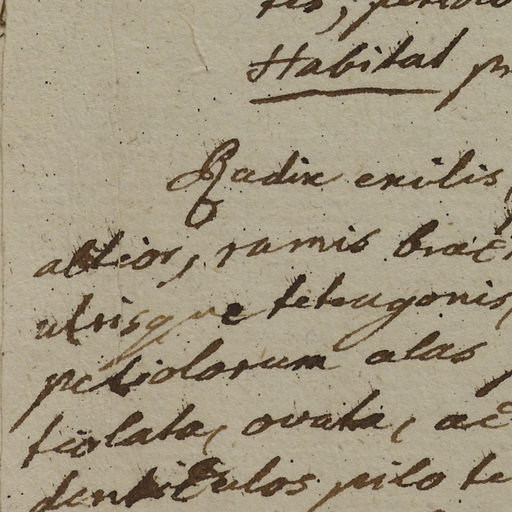 Habitat
Radix exilis,
altior, ramis
utrisque tetragonis,
petiolorum alas
tiolata, ovata, ac
denticulos pilo te